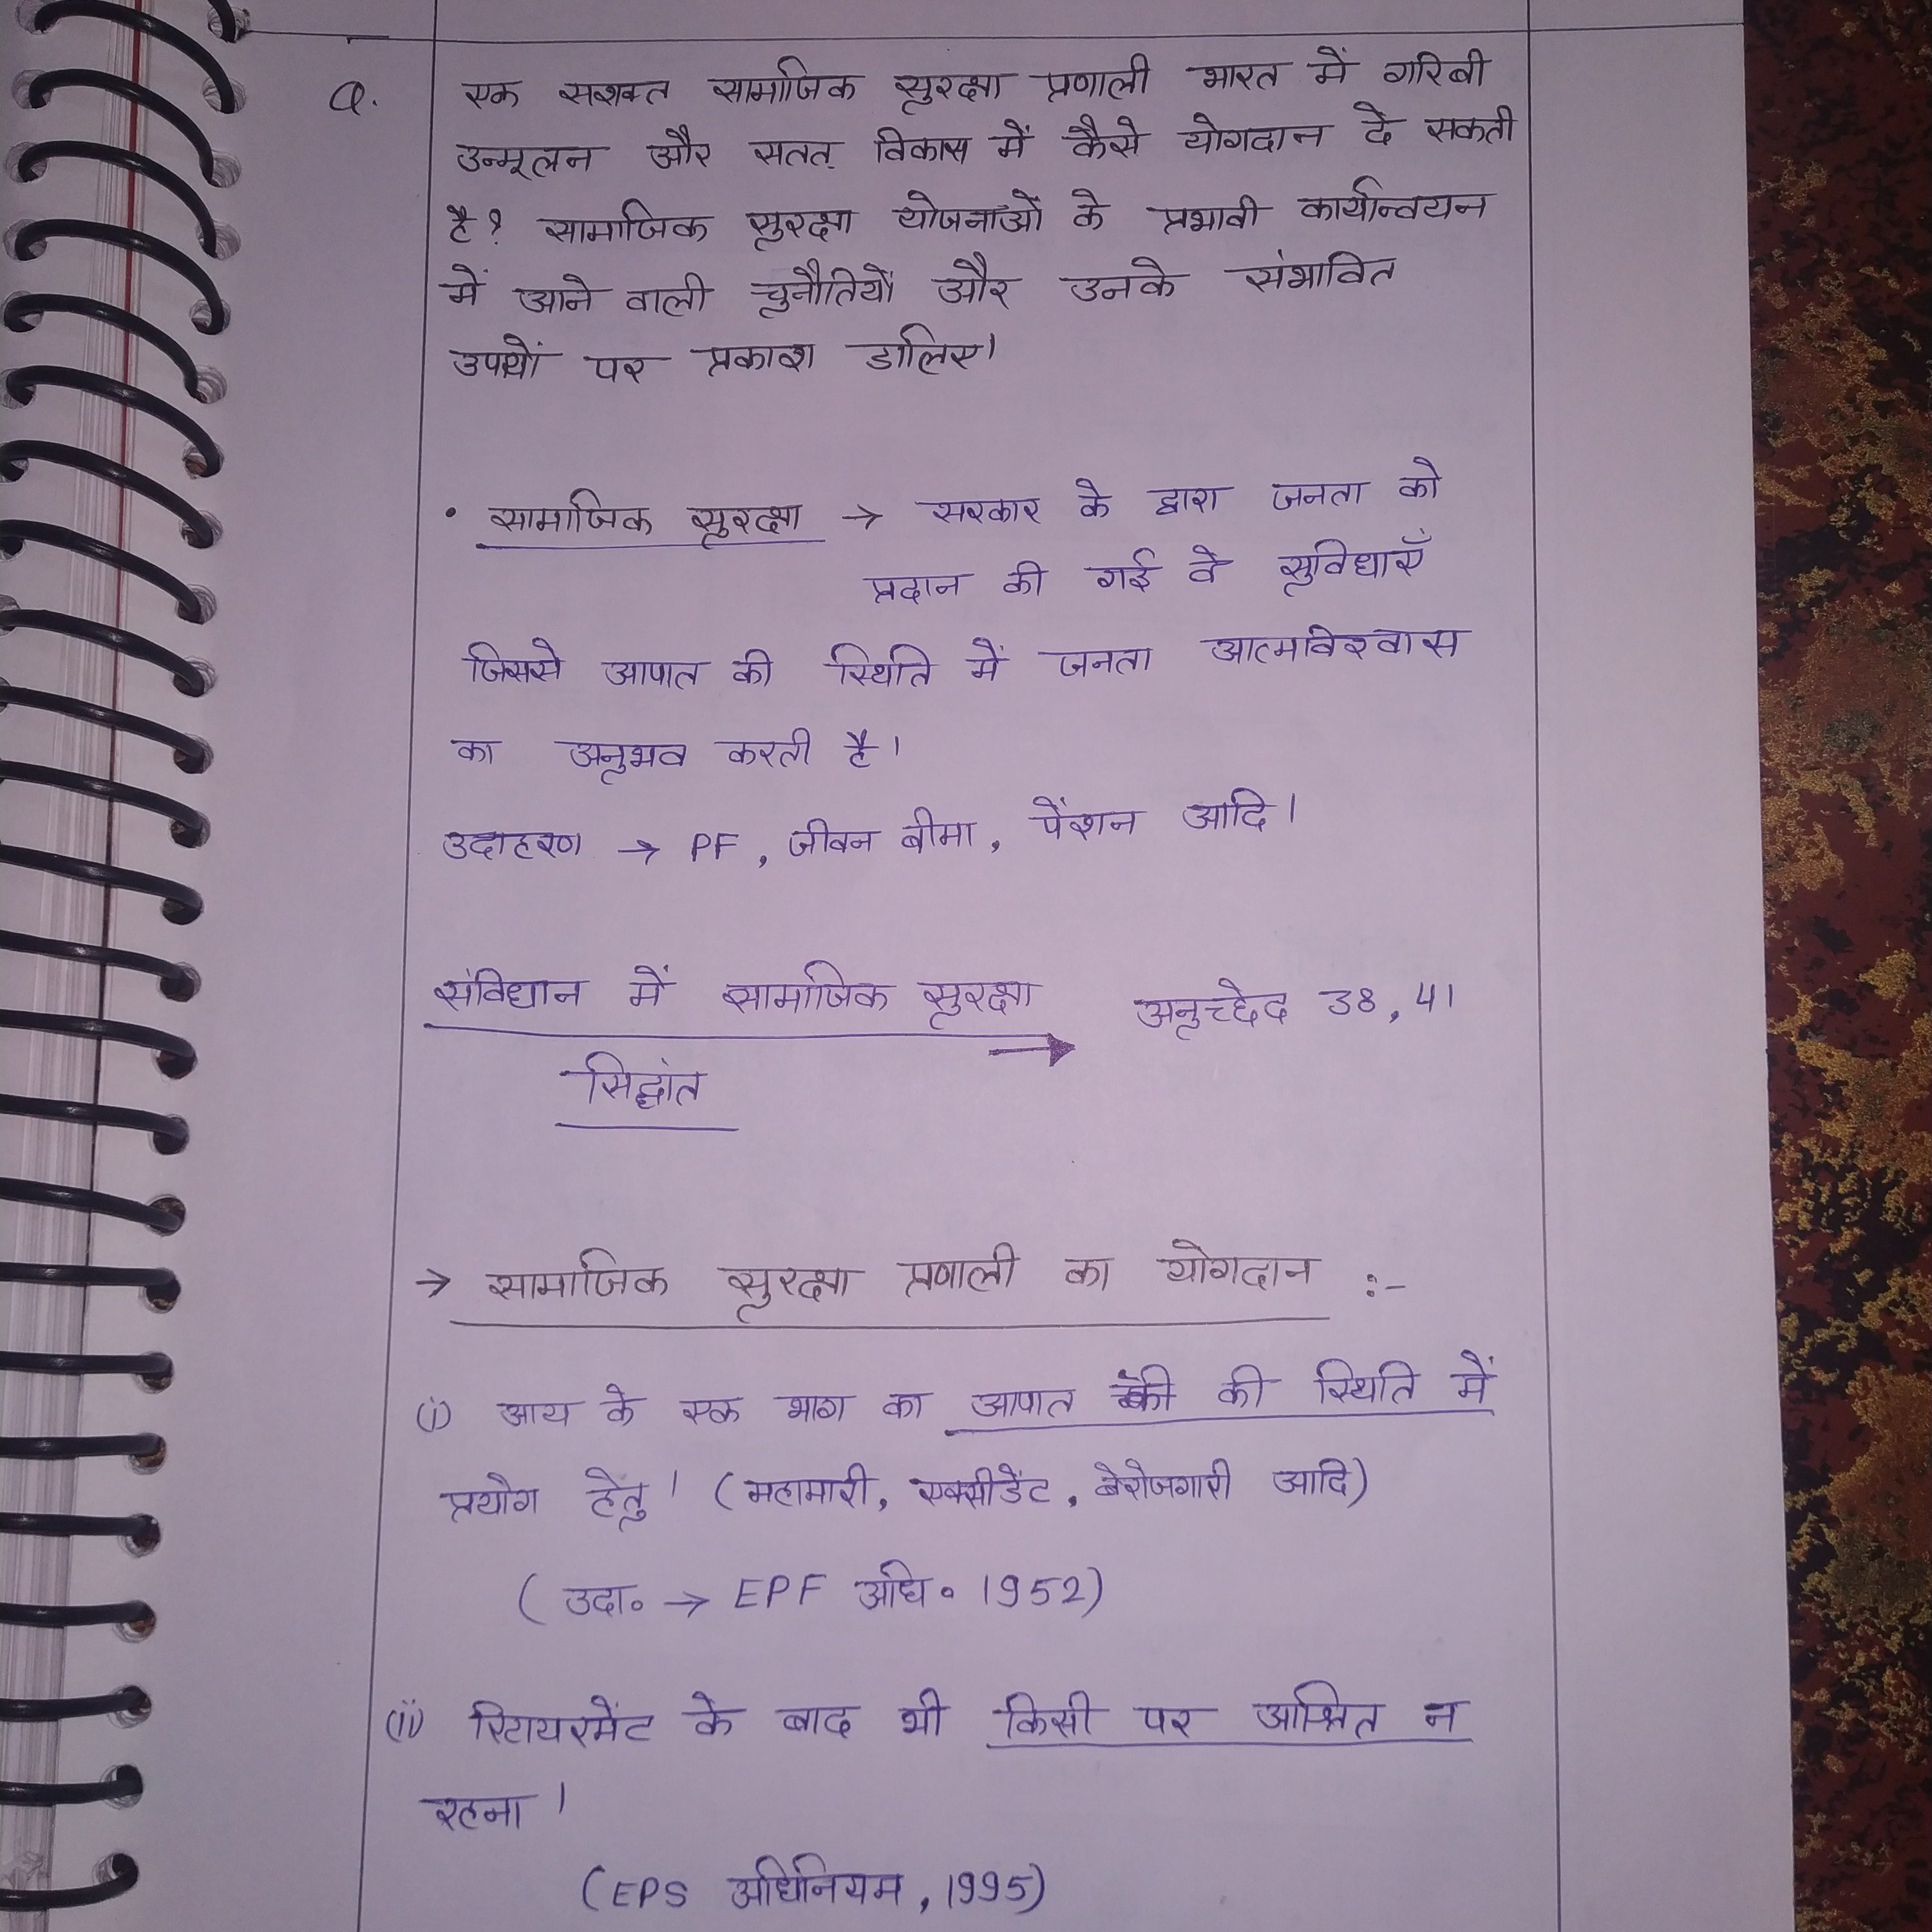 Q. एक सशक्त सामाजिक सुरक्षा प्रणाली भारत में गरिबी
उन्मूलन और सतत् विकास में कैसे योगदान दे सकती
है? सामाजिक सुरक्षा योजनाओं के प्रभावी कार्यान्वयन
में आने वाली चुनौतियों और उनके संभावित
उपायों पर प्रकाश डालिए।
• सामाजिक सुरक्षा → सरकार के द्वारा जनता को
प्रदान की गई वे सुविधाएँ
जिससे आपात की स्थिति में जनता आत्मविश्वास
का अनुभव करती है।
उदाहरण → PF, जीवन बीमा, पेंशन आदि।
संविधान में सामाजिक सुरक्षा → अनुच्छेद 38, 41
सिद्धांत
→ सामाजिक सुरक्षा प्रणाली का योगदान :-
(i) आय के एक भाग का आपात की की स्थिति में
प्रयोग हेतु। (महामारी, एक्सीडेंट, बेरोजगारी आदि)
(उदा० → EPF अधि० 1952)
(ii) रिटायरमेंट के बाद भी किसी पर आश्रित न
रहना।
(EPS अधिनियम, 1995)